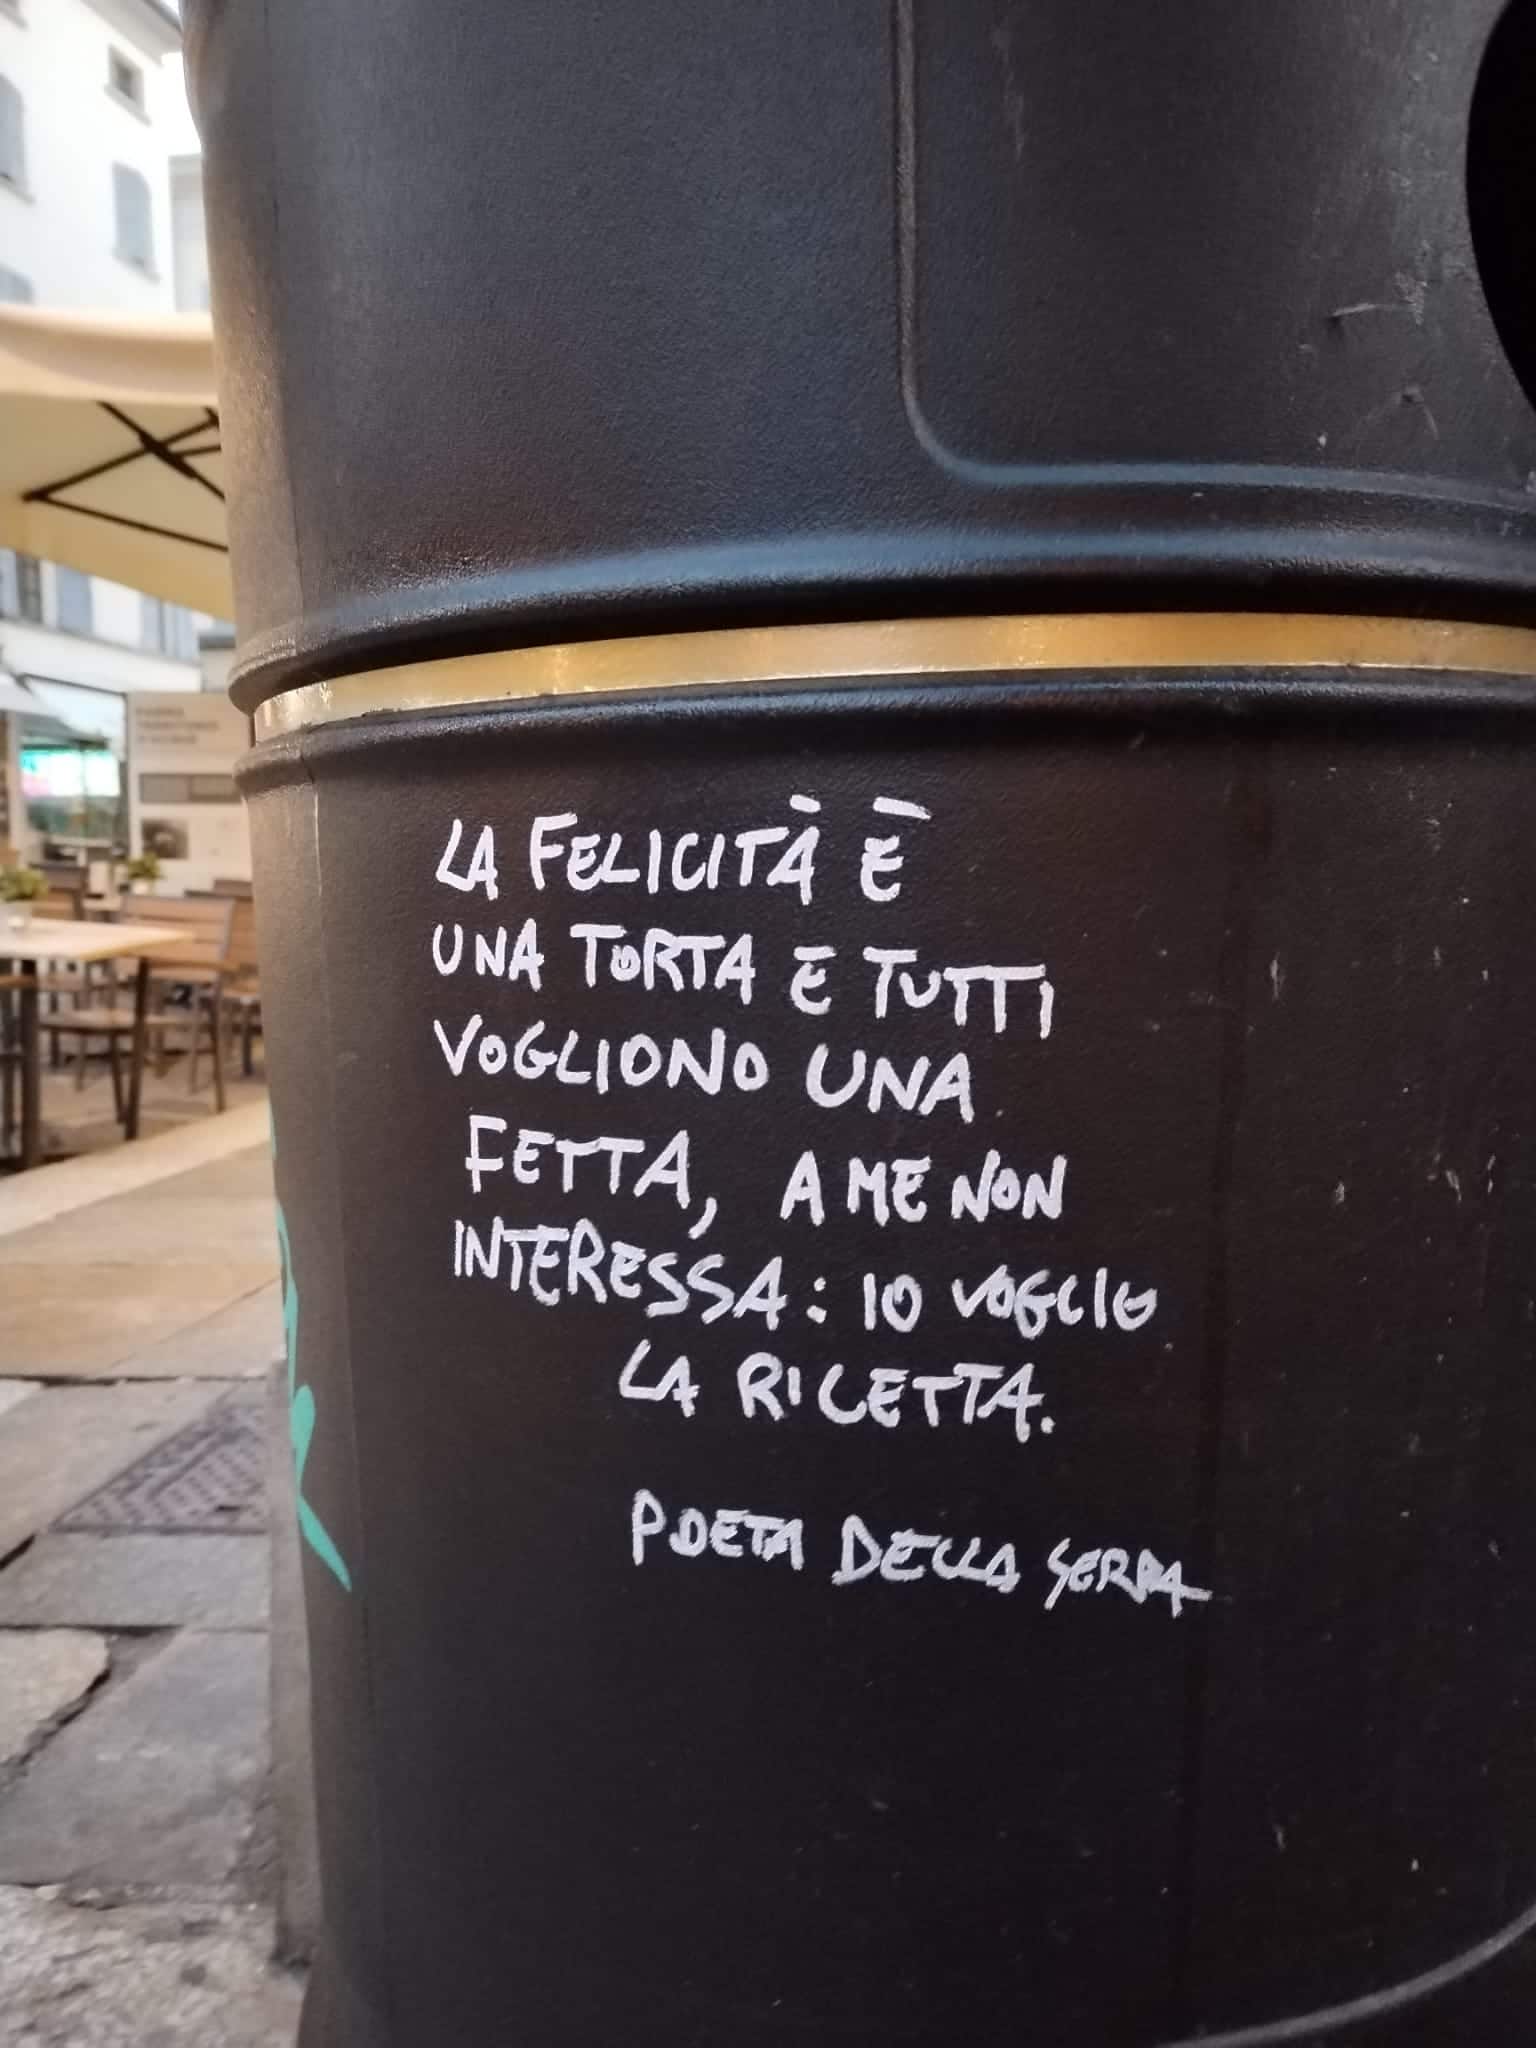 LA FELICITÀ È
UNA TORTA E TUTTI
VOGLIONO UNA
FETTA, A ME NON
INTERESSA: IO VOGLIO
LA RICETTA.
POETA DELLA SERRA